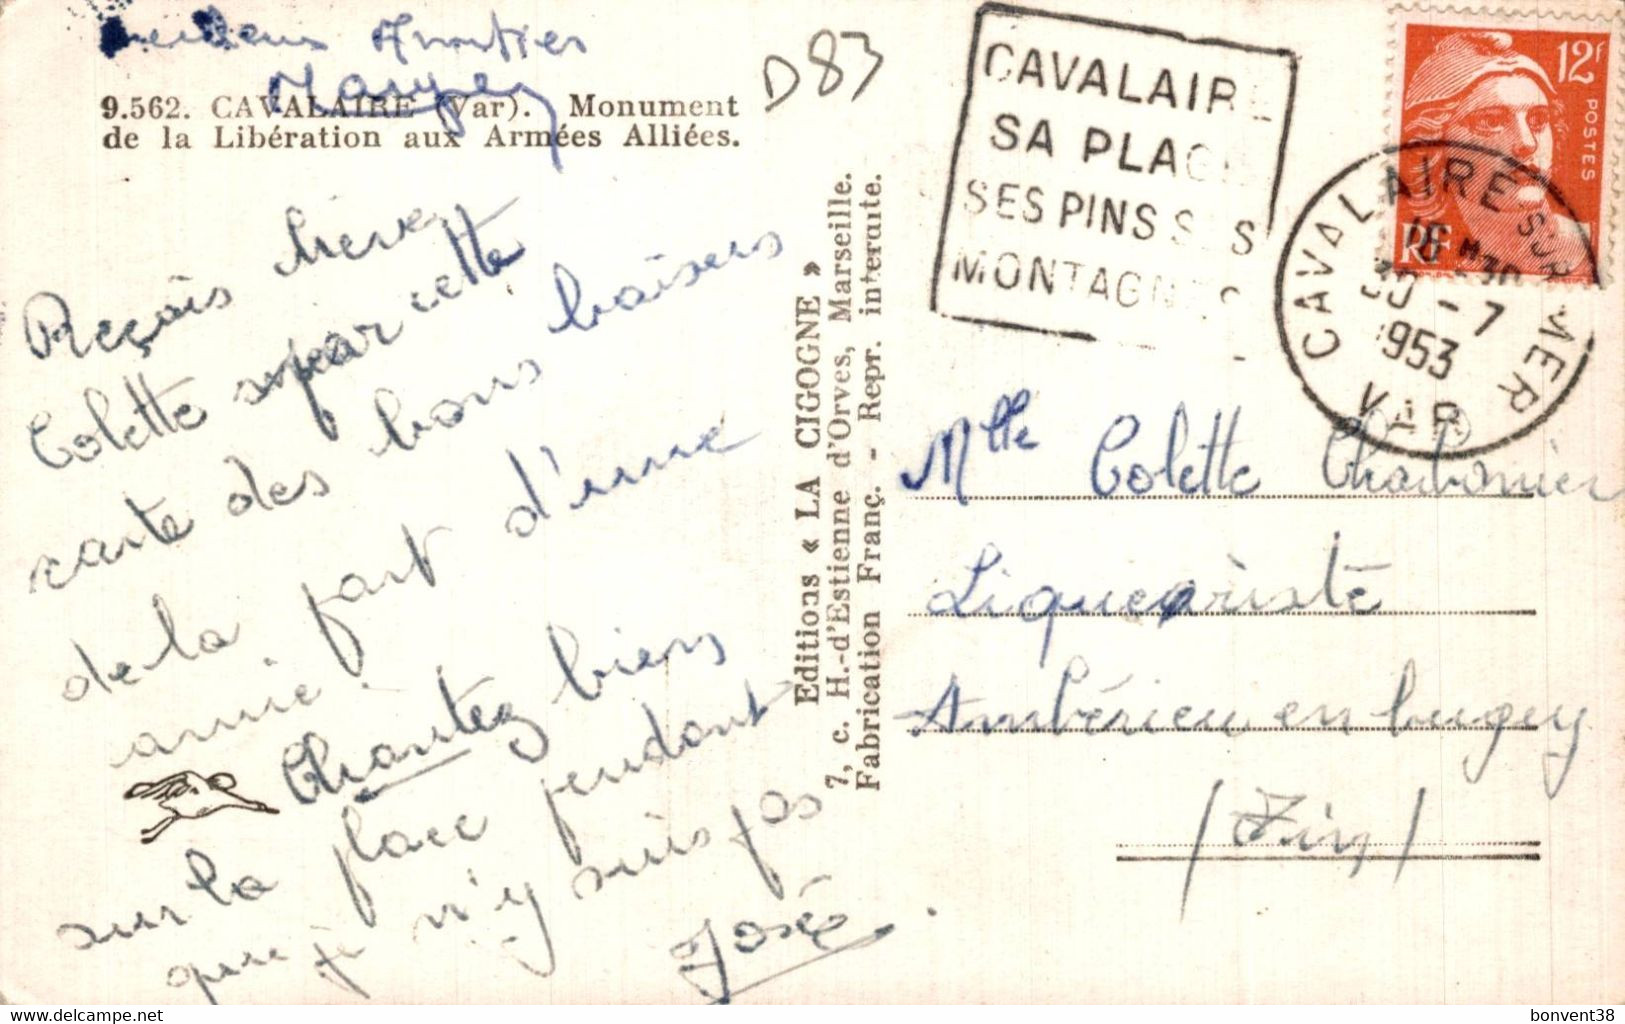 Amitiés
9.562. CAVALAIRE (Var). Monument
de la Libération aux Armées Alliées.
D83
Reçois chère
Colette par cette
carte des bons baisers
de la part d'une
amie.
Chantez bien
sur la place pendant
que je n'y suis pas
José
Editions « LA CIGOGNE »
7, c. H.-d'Estienne d'Orves, Marseille.
Fabrication Franç. - Repr. interdite.
CAVALAIRE
SA PLAGE
SES PINS SES
MONTAGNES
12F
POSTES
RF
CAVALAIRE SUR MER
16 H 30
30 - 7
1953
VAR
Mlle Colette Charbonnier
Liqueuriste
Ambérieu en bugey
/ Ain /
bonvent38